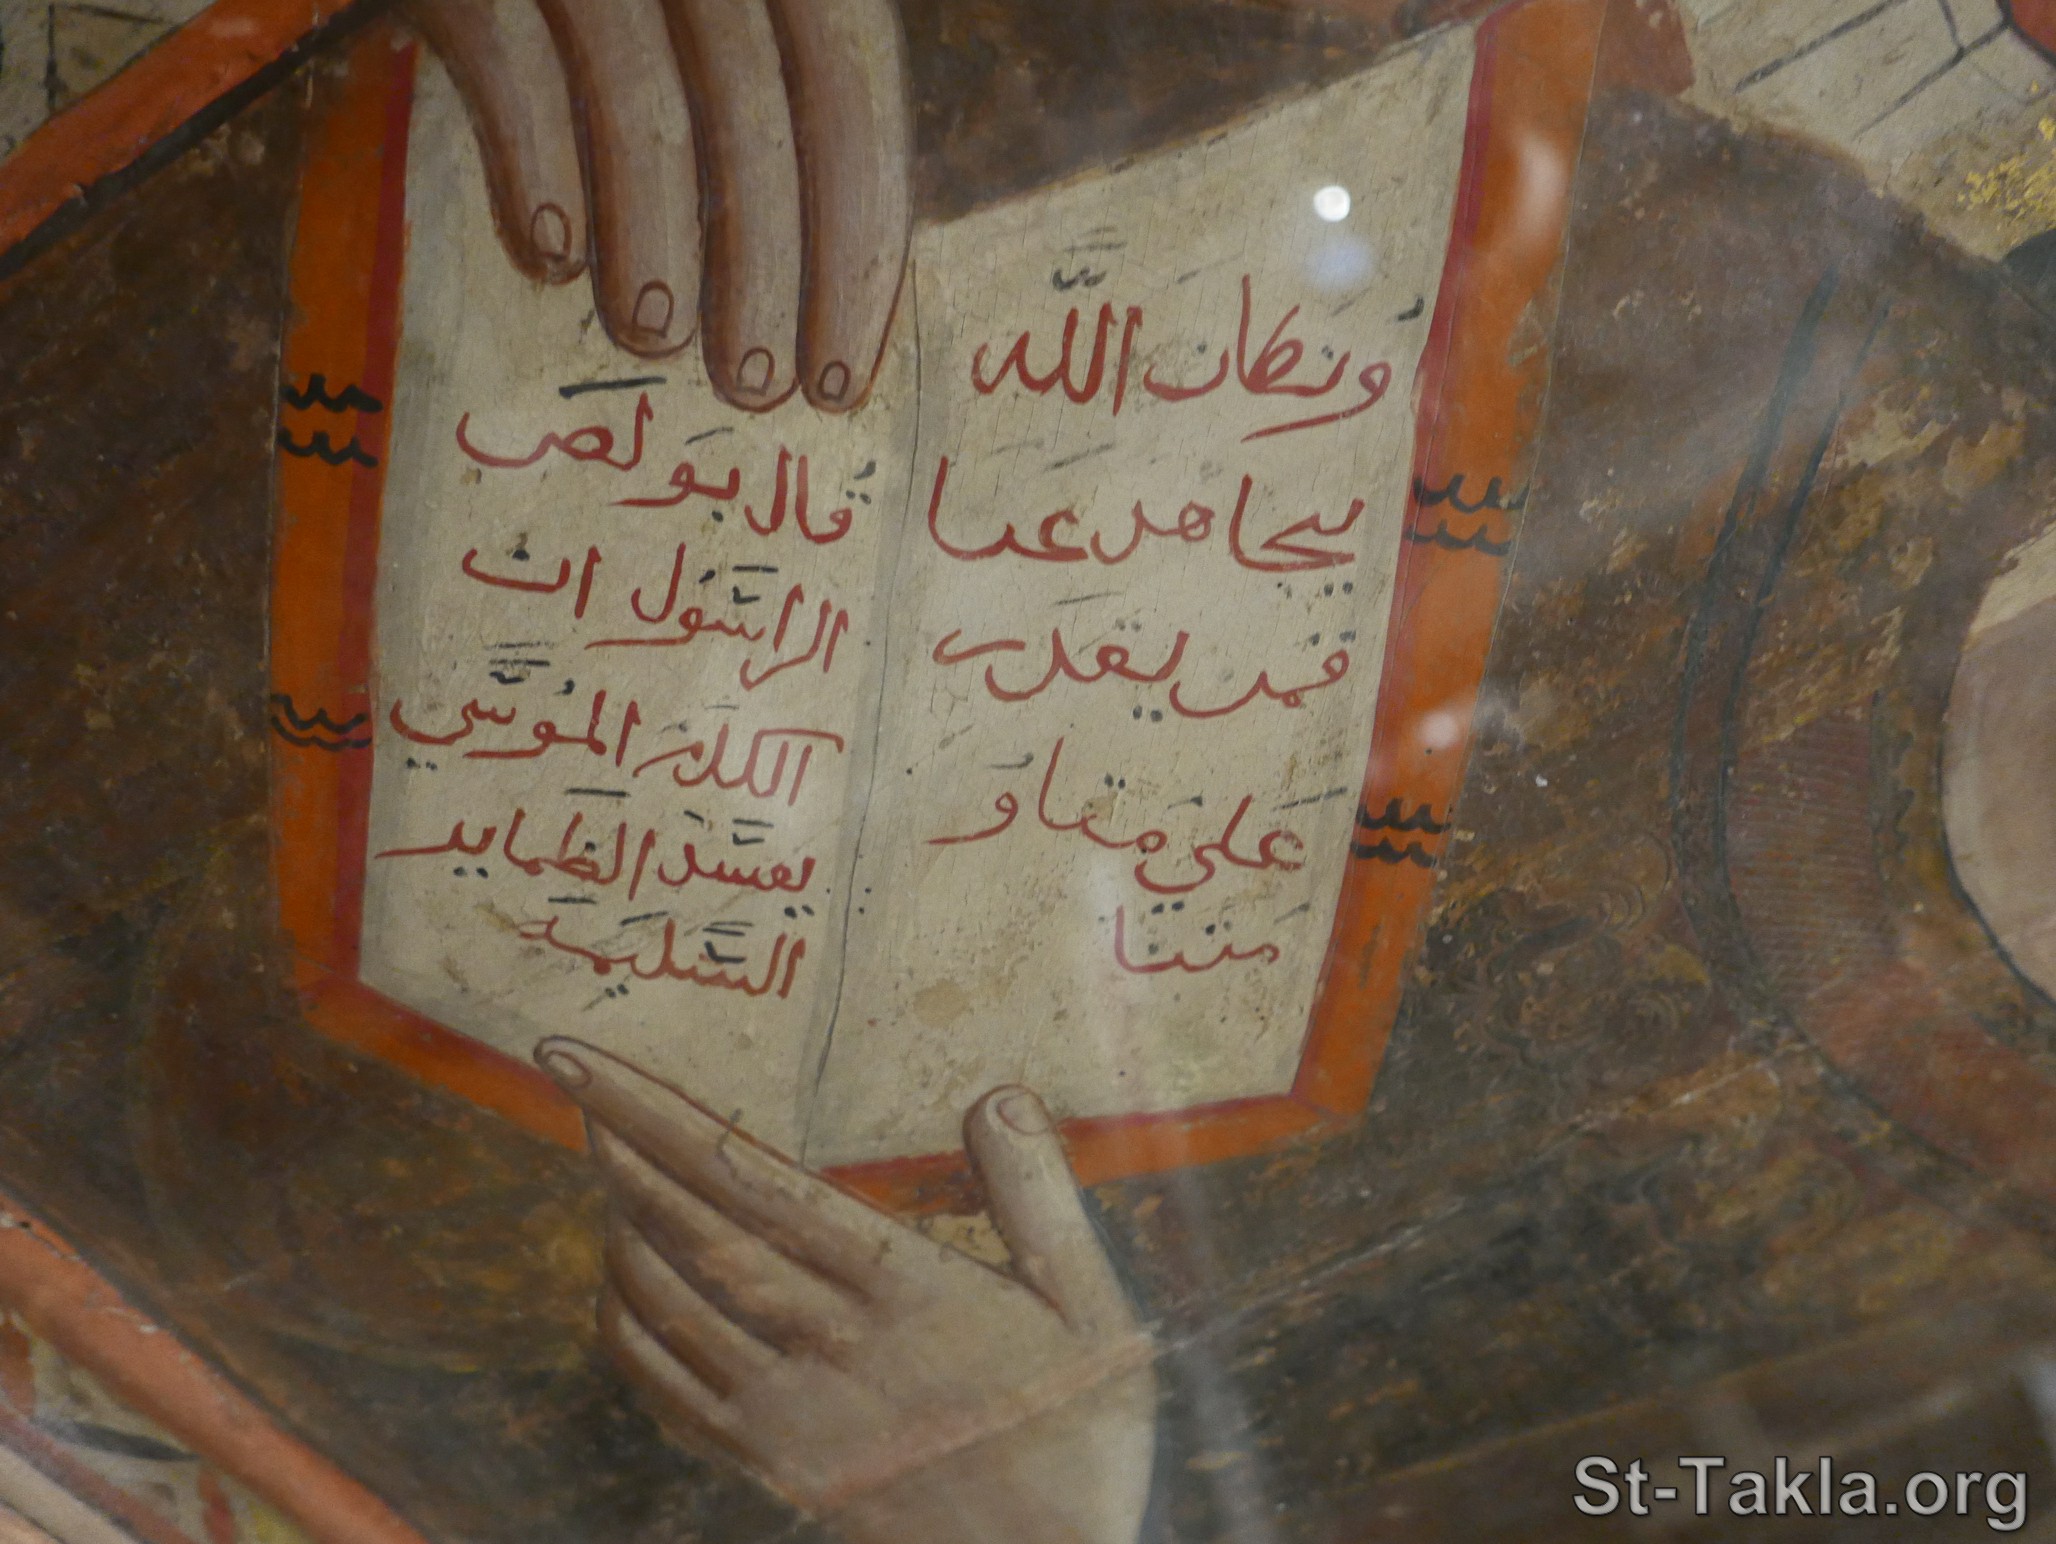 وان كان الله
يجاهد عنا
فمن يقدر
علي مقاو
متنا
قال بولص
الراسول ان
الكلام الموسي
يفسد الظماير
السليمة
St-Takla.org